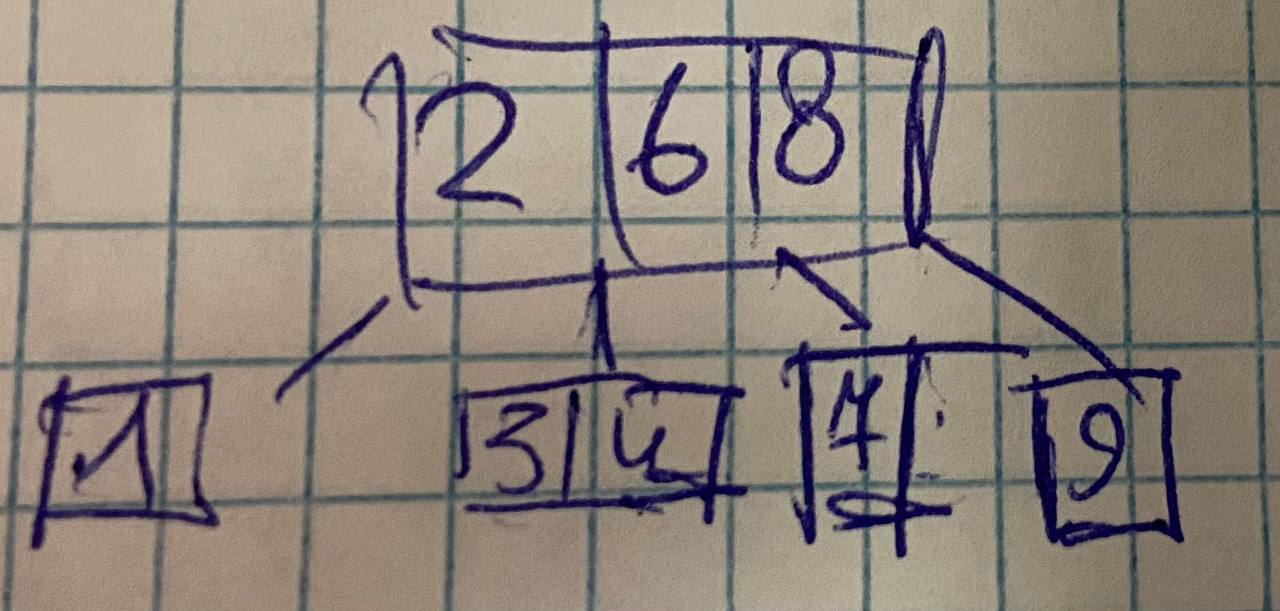 2 6 8
1 3 4 7 9